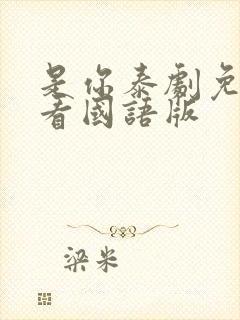 是你泰劇免
看國語版
梁米